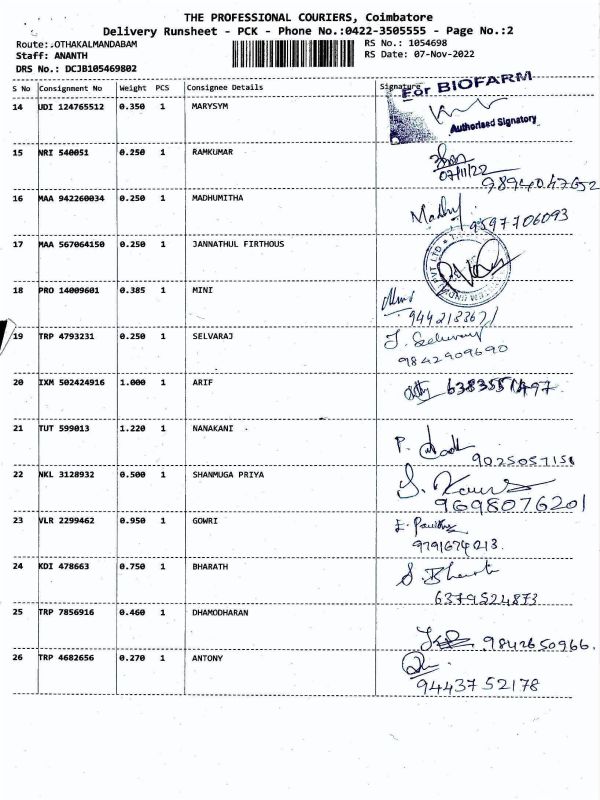 THE PROFESSIONAL COURIERS, Coimbatore
Delivery Runsheet - PCK - Phone No.:0422-3505555 - Page No.:2
Route:.OTHAKALMANDABAM RS No.: 1054698
Staff: ANANTH RS Date: 07-Nov-2022
DRS No.: DCJB105469802
S No Consignment No Weight PCS Consignee Details Signature
For BIOFARM
14 UDI 124765512 0.350 1 MARYSYM
Authorised Signatory
15 NRI 540051 0.250 1 RAMKUMAR
07/11/22
9894047652
16 MAA 942260034 0.250 1 MADHUMITHA Madhu
9597706093
17 MAA 567064150 0.250 1 JANNATHUL FIRTHOUS
PVT LTD
18 PRO 14009601 0.385 1 MINI Mini
9442183671
19 TRP 4793231 0.250 1 SELVARAJ J. Selvaraj
9842909690
20 IXM 502424916 1.000 1 ARIF 6383551497
21 TUT 599013 1.220 1 NANAKANI P.
9025057151
22 NKL 3128932 0.500 1 SHANMUGA PRIYA S.
9698076201
23 VLR 2299462 0.950 1 GOWRI
9791674213.
24 KDI 478663 0.750 1 BHARATH S. Bharath
6379524873
25 TRP 7856916 0.460 1 DHAMODHARAN
9842650966.
26 TRP 4682656 0.270 1 ANTONY
9443752178